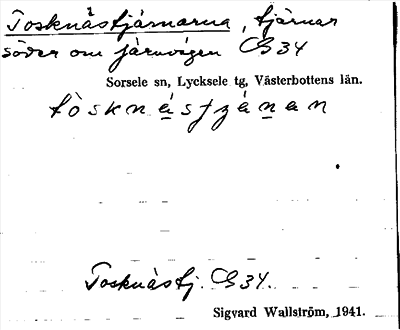 Tosknästjärnarna, tjärnar
söder om järnvägen CG34
Sorsele sn, Lycksele tg, Västerbottens län.
tòsknástjánan
Tosknästj. CG34.
Sigvard Wallström, 1941.